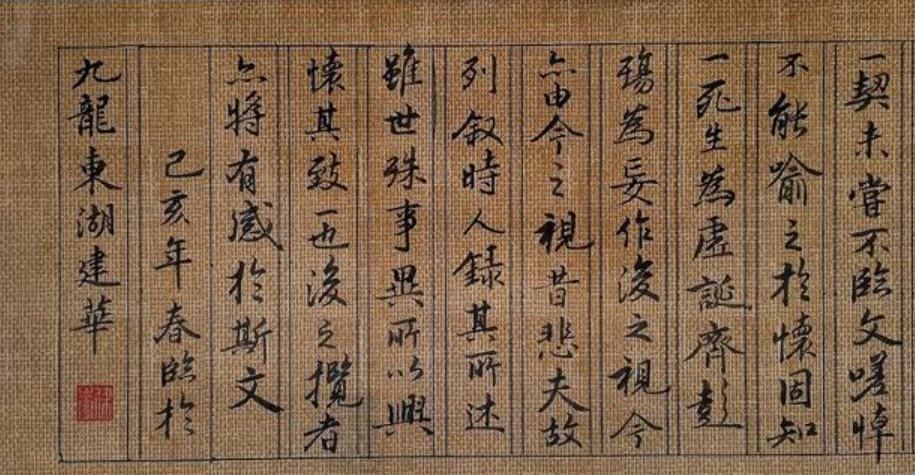 一契未嘗不臨文嗟悼
不能喻之於懷固知
一死生為虛誕齊彭
殤為妄作後之視今
亦由今之視昔悲夫故
列敘時人錄其所述
雖世殊事異所以興
懷其致一也後之攬者
亦將有感於斯文
己亥年春臨於
九龍東湖建華